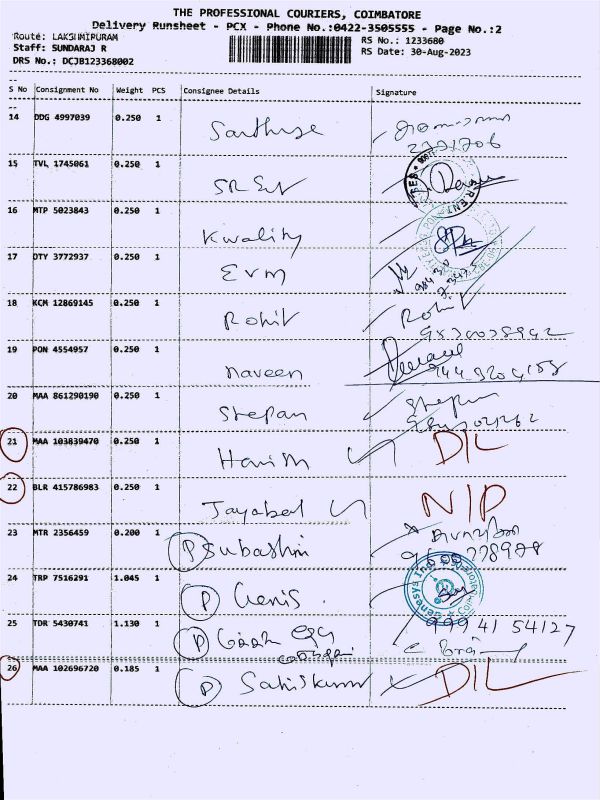 THE PROFESSIONAL COURIERS, COIMBATORE
Delivery Runsheet - PCX - Phone No.:0422-3505555 - Page No.:2
Route: LAKSHMIPURAM
RS No.: 1233680
Staff: SUNDARAJ R
RS Date: 30-Aug-2023
DRS No.: DCJB123368002
S No Consignment No Weight PCS Consignee Details Signature
14 DDG 4997039 0.250 1
15 TVL 1745061 0.250 1
16 MTP 5023843 0.250 1 Kwality
17 DTY 3772937 0.250 1 EVM
18 KCM 12869145 0.250 1 Rohit Rohit
19 PON 4554957 0.250 1 Naveen
20 MAA 861290190 0.250 1 Stepan
21 MAA 103839470 0.250 1 Harish D/L
22 BLR 415786983 0.250 1 Jayabal N/P
23 MTR 2356459 0.200 1 P Subashini
24 TRP 7516291 1.045 1 P
25 TDR 5430741 1.130 1 P 99941 54127
26 MAA 102696720 0.185 1 P Satiskumar D/L